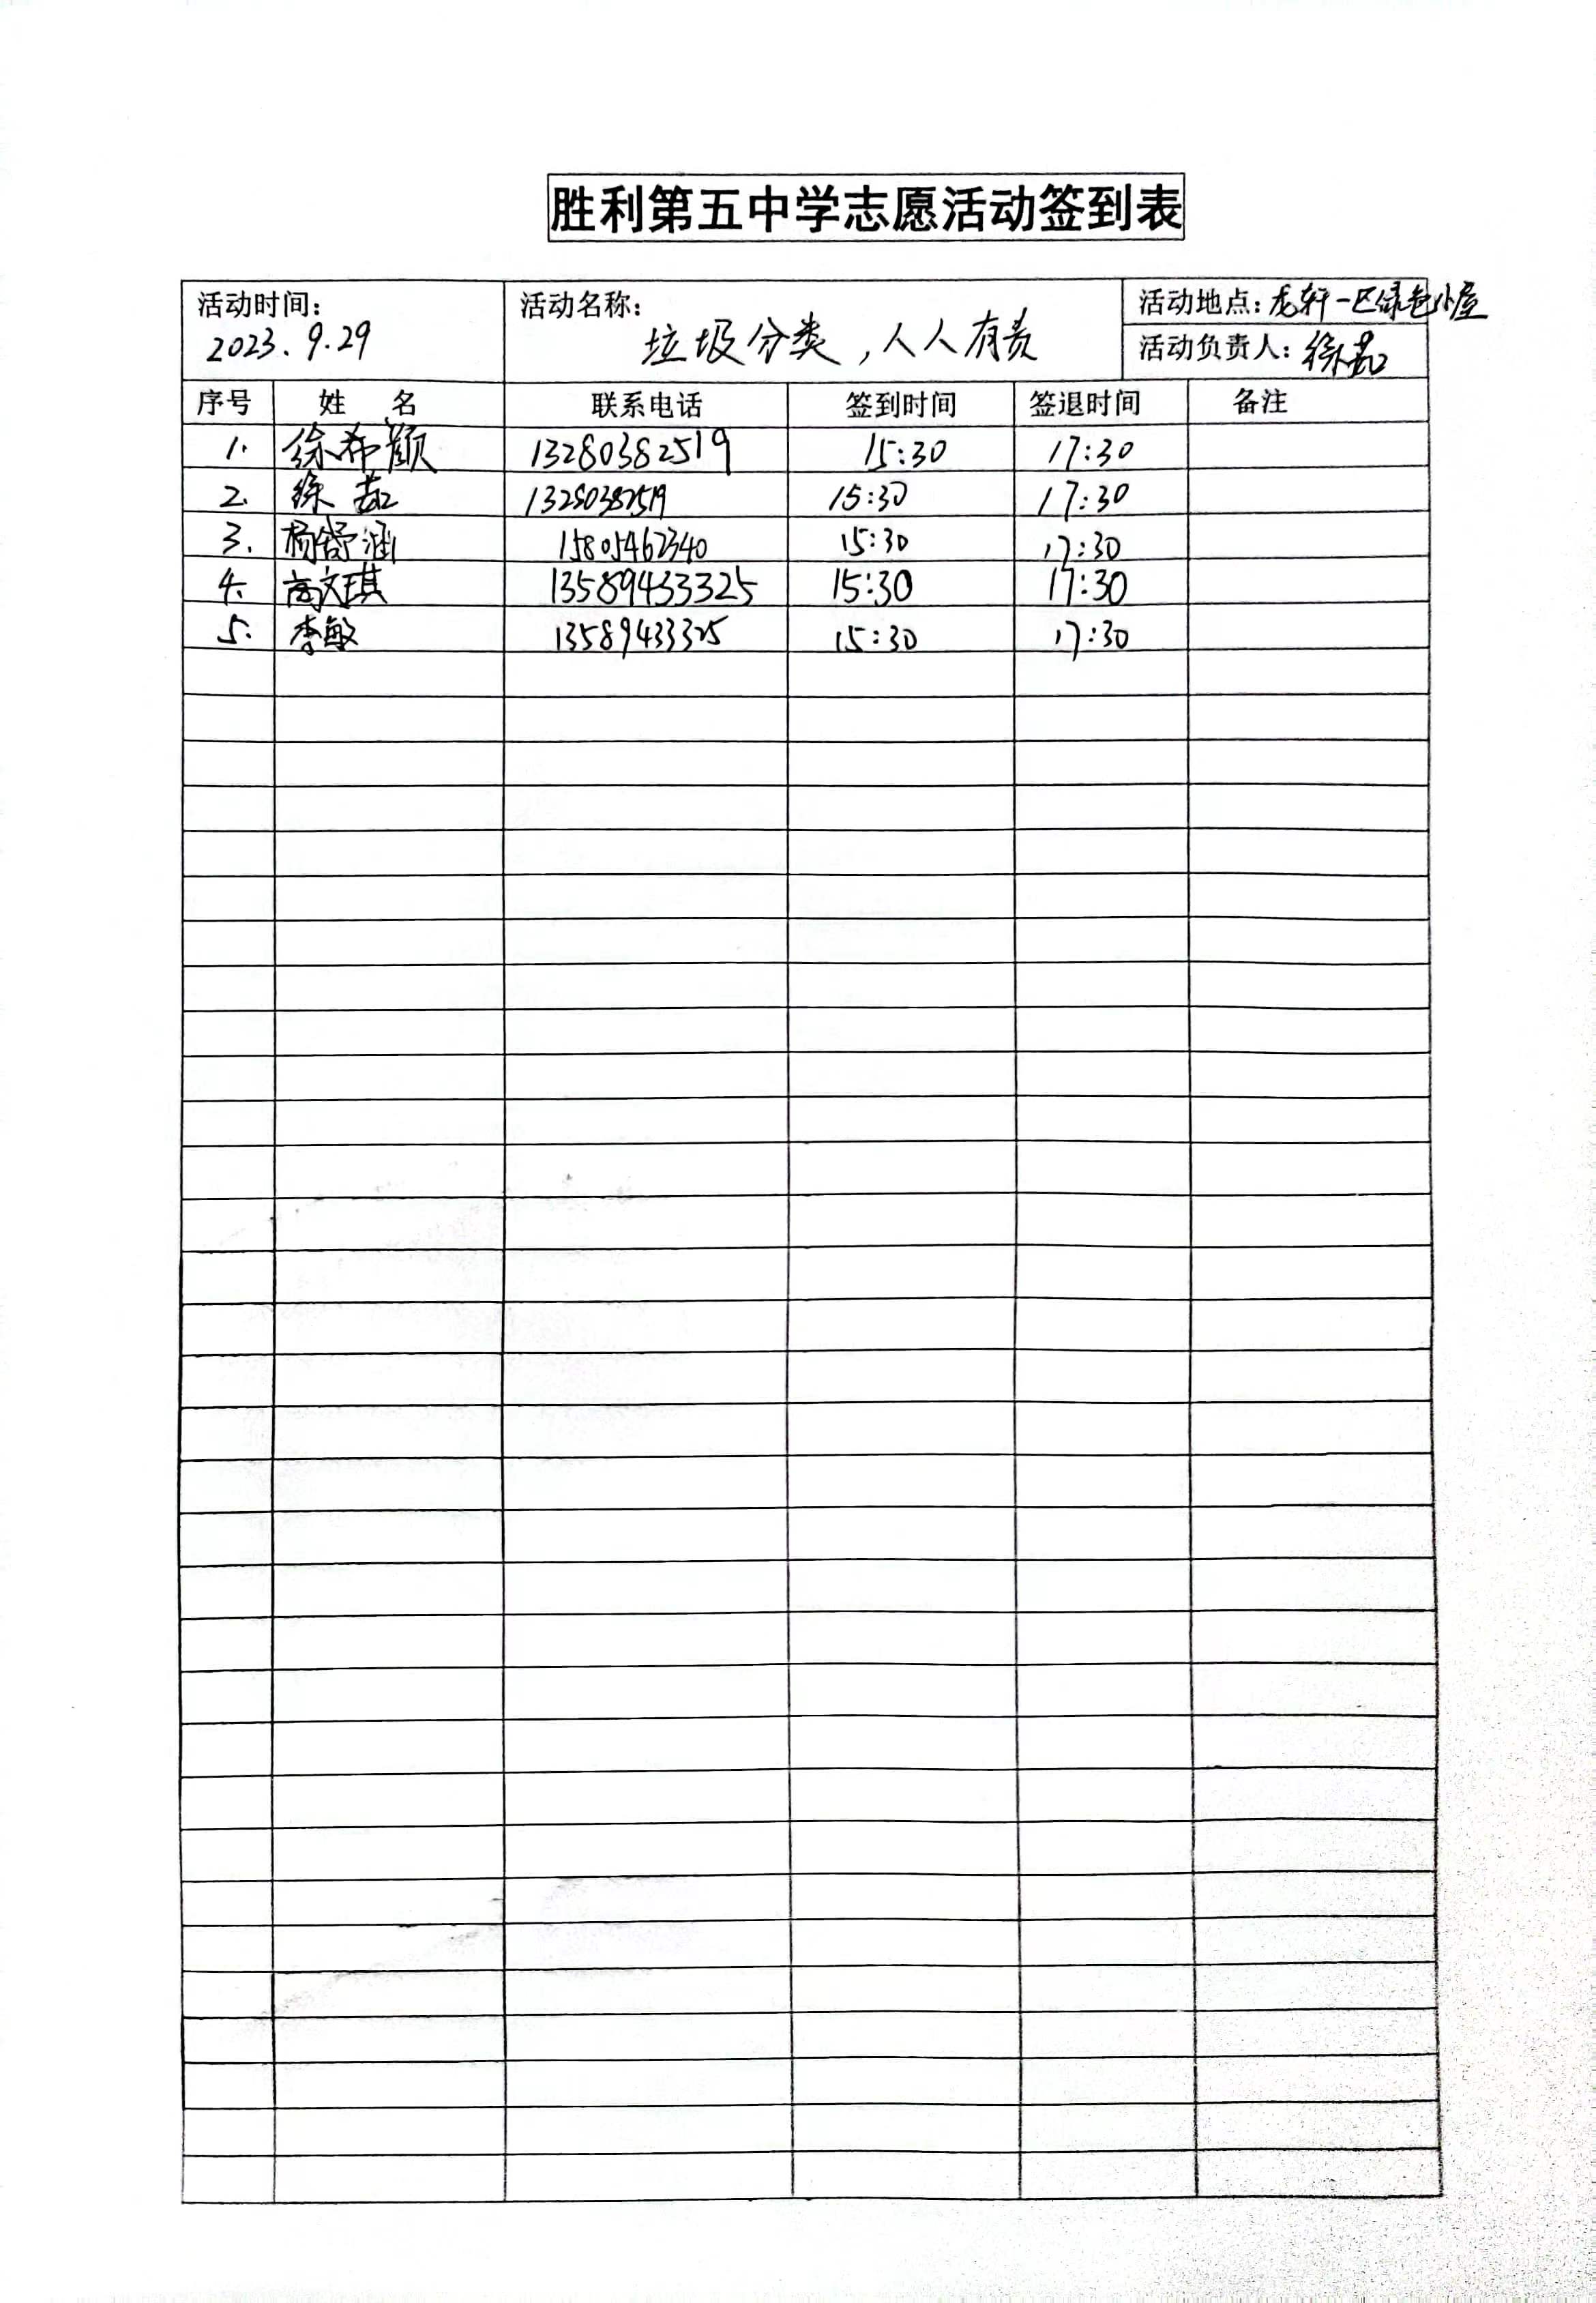 胜利第五中学志愿活动签到表
活动时间: 活动名称: 活动地点: 龙轩一区绿色小屋
2023.9.29 垃圾分类,人人有责 活动负责人: 徐茹
序号 姓 名 联系电话 签到时间 签退时间 备注
1. 徐希颖 13280382519 15:30 17:30
2. 徐茹 13280382519 15:30 17:30
3. 杨舒涵 15805462340 15:30 17:30
4. 高文琪 13589433325 15:30 17:30
5. 李敏 13589433325 15:30 17:30